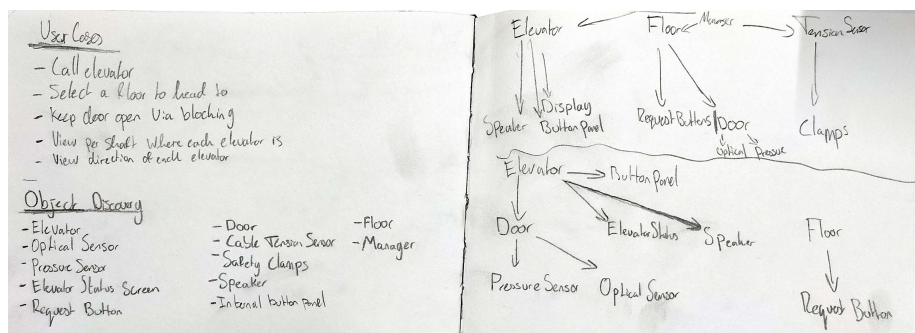 User Cases
- Call elevator
- Select a floor to head to
- Keep door open via blocking
- View per shaft where each elevator is
- View direction of each elevator
Object Discovery
- Elevator
- Optical Sensor
- Pressure Sensor
- Elevator Status Screen
- Request Button
- Door
- Cable Tension Sensor
- Safety Clamps
- Speaker
- Internal button panel
- Floor
- Manager
Elevator Floor Manager Tension Sensor
Speaker Display Button Panel Request Buttons Door Clamps
Optical Pressure
Elevator Button Panel
Door Elevator Status Speaker Floor
Pressure Sensor Optical Sensor Request Button